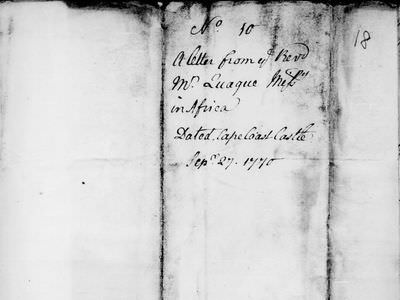 No. 10
18
A letter from ye. Revd
Mr. Quaque Missy
in Africa
Dated Cape Coast Castle
Sepr. 27. 1770